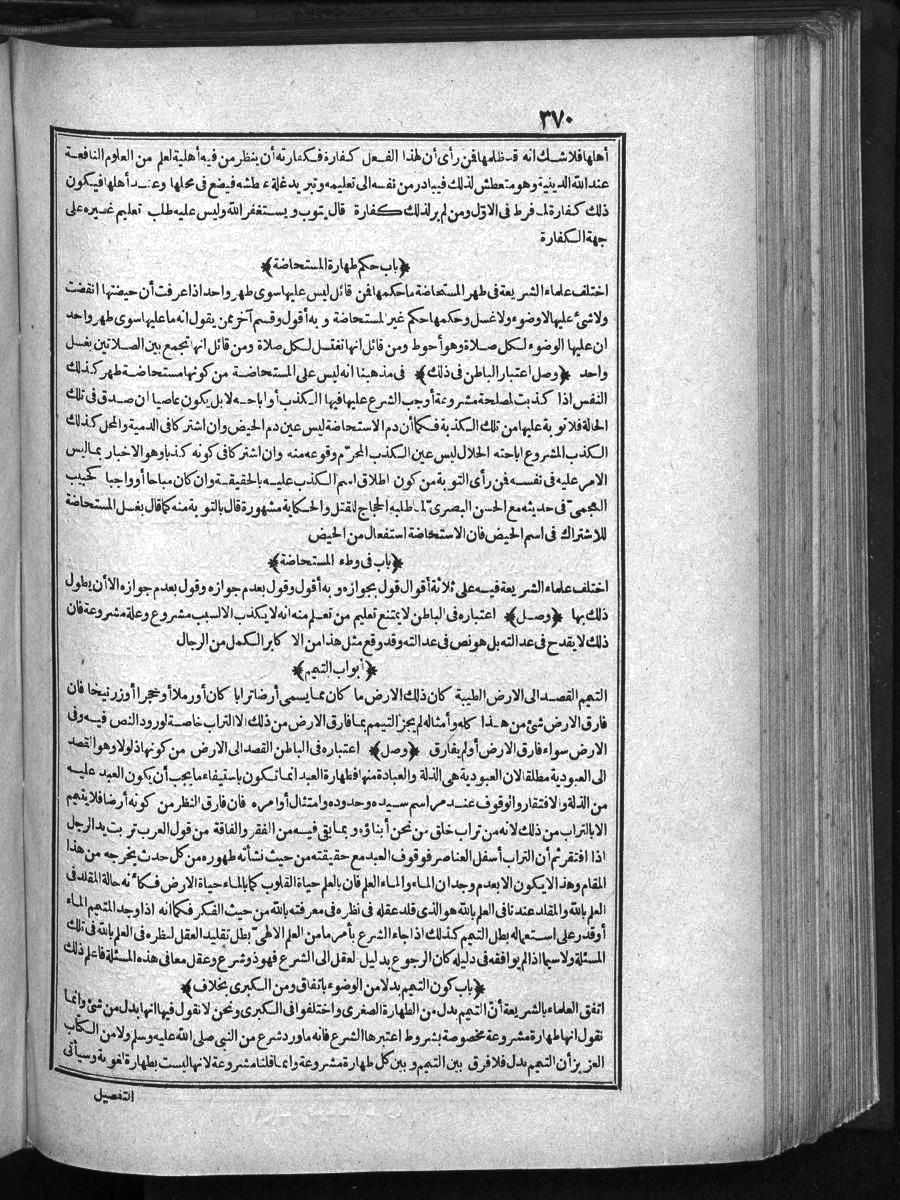 ٣٧٠
أهلها فلا شك انه قد ظلمها فمن رأى أن لهذا الفعل كفارة فكفارته أن ينظر من فيه أهلية لعلم من العلوم النافعة
عند الله الدينية وهو متعطش لذلك فيبادر من نفسه الى تعليمه وتبريد غلة عطشه فيضع فى محلها وعند أهلها فيكون
ذلك كفارة لما فرط فى الاوّل ومن لم ير لذلك كفارة قال يتوب ويستغفر الله وليس عليه طلب تعليم غيره على
جهة الكفارة
﴿باب حكم طهارة المستحاضة﴾
اختلف علماء الشريعة فى طهر المستحاضة ما حكمها فمن قائل ليس عليها سوى طهر واحد اذا عرفت أن حيضتها انقضت
ولا شئ عليها لا وضوء ولا غسل وحكمها حكم غير المستحاضة وبه أقول وقسم آخر ممن يقول انه ما عليها سوى طهر واحد
ان عليها الوضوء لكل صلاة وهو أحوط ومن قائل انها تغتسل لكل صلاة ومن قائل انها تجمع بين الصلاتين بغسل
واحد ﴿وصل اعتبار الباطن فى ذلك﴾ فى مذهبنا انه ليس على المستحاضة من كونها مستحاضة طهر كذلك
النفس اذا كذبت لمصلحة مشروعة أوجب الشرع عليها فيها الكذب أو اباحه لا بل يكون عاصيا ان صدق فى تلك
الحالة فلا توبة عليها من تلك الكذبة فكما أن دم الاستحاضة ليس عين دم الحيض وان اشتركا فى الدمية والمحل كذلك
الكذب المشروع اباحته الحلال ليس عين الكذب المحرّم وقوعه منه وان اشتركا فى كونه كذبا وهو الاخبار بما ليس
الامر عليه فى نفسه فمن رأى التوبة من كون اطلاق اسم الكذب عليه بالحقيقة وان كان مباحا أو واجبا كحبيب
العجمى فى حديثه مع الحسن البصرى لما طلبه الحجاج للقتل والحكاية مشهورة قال بالتوبة منه كما قال بغسل المستحاضة
للاشتراك فى اسم الحيض فان الاستحاضة استفعال من الحيض
﴿باب فى وطء المستحاضة﴾
اختلف علماء الشريعة فيه على ثلاثة أقوال قول بجوازه وبه أقول وقول بعدم جوازه وقول بعدم جوازه الا أن يطول
ذلك بها ﴿وصل﴾ اعتباره فى الباطن لا يمتنع تعليم من تعلم منه انه لا يكذب الا لسبب مشروع وعلة مشروعة فان
ذلك لا يقدح فى عدالته بل هو نص فى عدالته وقد وقع مثل هذا من الاكابر الكمل من الرجال
﴿أبواب التيمم﴾
التيمم القصد الى الارض الطيبة كان ذلك الارض ما كان مما يسمى أرضا ترابا كان أو رملا أو حجرا أو زرنيخا فان
فارق الارض شئ من هذا كله وأمثاله لم يجز التيمم بما فارق الارض من ذلك الا التراب خاصة لورود النص فيه وفى
الارض سواء فارق الارض أو لم يفارق ﴿وصل﴾ اعتباره فى الباطن القصد الى الارض من كونها ذلولا وهو القصد
الى العبودية مطلقا لان العبودية هى الذلة والعبادة منها فطهارة العبد انما تكون باستيفاء ما يجب أن يكون العبد عليه
من الذلة والافتقار والوقوف عند مراسم سيده وحدوده وامتثال أوامره فان فارق النظر من كونه أرضا فلا يتيمم
الا بالتراب من ذلك لانه من تراب خلق من نحن أبناؤه وبما بقى فيه من الفقر والفاقة من قول العرب تربت يد الرجل
اذا افتقر ثم أن التراب أسفل العناصر فوقوف العبد مع حقيقته من حيث نشأته طهوره من كل حدث يخرجه من هذا
المقام وهذا لا يكون الا بعدم وجدان الماء والماء العلم فان بالعلم حياة القلوب كما بالماء حياة الارض فكأنه حالة المقلد فى
العلم بالله والمقلد عندنا فى العلم بالله هو الذى قلد عقله فى نظره فى معرفته بالله من حيث الفكر فكما انه اذا وجد المتيمم الماء
أو قدر على استعماله بطل التيمم كذلك اذا جاء الشرع بأمر ما من العلم الالهى بطل تقليد العقل لنظره فى العلم بالله فى تلك
المسئلة ولا سيما اذا لم يوافقه فى دليله كان الرجوع بدليل العقل الى الشرع فهو ذو شرع وعقل معا فى هذه المسئلة فاعلم ذلك
﴿باب كون التيمم بدلا من الوضوء باتفاق ومن الكبرى بخلاف﴾
اتفق العلماء بالشريعة أنّ التيمم بدل من الطهارة الصغرى واختلفوا فى الكبرى ونحن لا نقول فيها انها بدل من شئ وانما
نقول انها طهارة مشروعة مخصوصة بشروط اعتبرها الشرع فانه ما ورد شرع من النبى صلى الله عليه وسلم ولا من الكتاب
العزيز أن التيمم بدل فلا فرق بين التيمم وبين كل طهارة مشروعة وانما قلنا مشروعة لانها ليست بطهارة لغوية وسيأتى
التفصيل